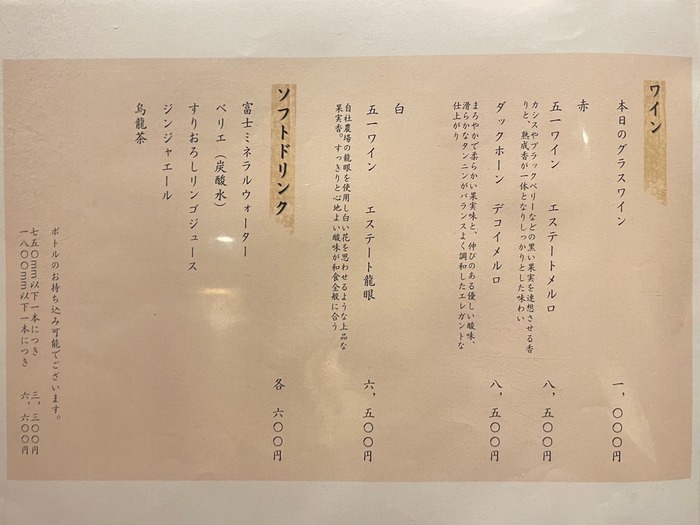 ワイン
本日のグラスワイン 一,〇〇〇円
赤
五一ワイン エステートメルロ 八,五〇〇円
カシスやブラックベリーなどの黒い果実を連想させる香
りと、熟成香が一体となりしっかりとした味わい
ダックホーン デコイメルロ 八,五〇〇円
まろやかで柔らかい果実味と、伸びのある優しい酸味、
滑らかなタンニンがバランスよく調和したエレガントな
仕上がり
白
五一ワイン エステート龍眼 六,五〇〇円
自社農場の龍眼を使用し白い花を思わせるような上品な
果実香。すっきりと心地よい酸味が和食全般に合う
ソフトドリンク 各 六〇〇円
富士ミネラルウォーター
ペリエ（炭酸水）
すりおろしリンゴジュース
ジンジャエール
烏龍茶
ボトルのお持ち込み可能でございます。
七五〇mm以下一本につき 三,三〇〇円
一八〇〇mm以下一本につき 六,六〇〇円